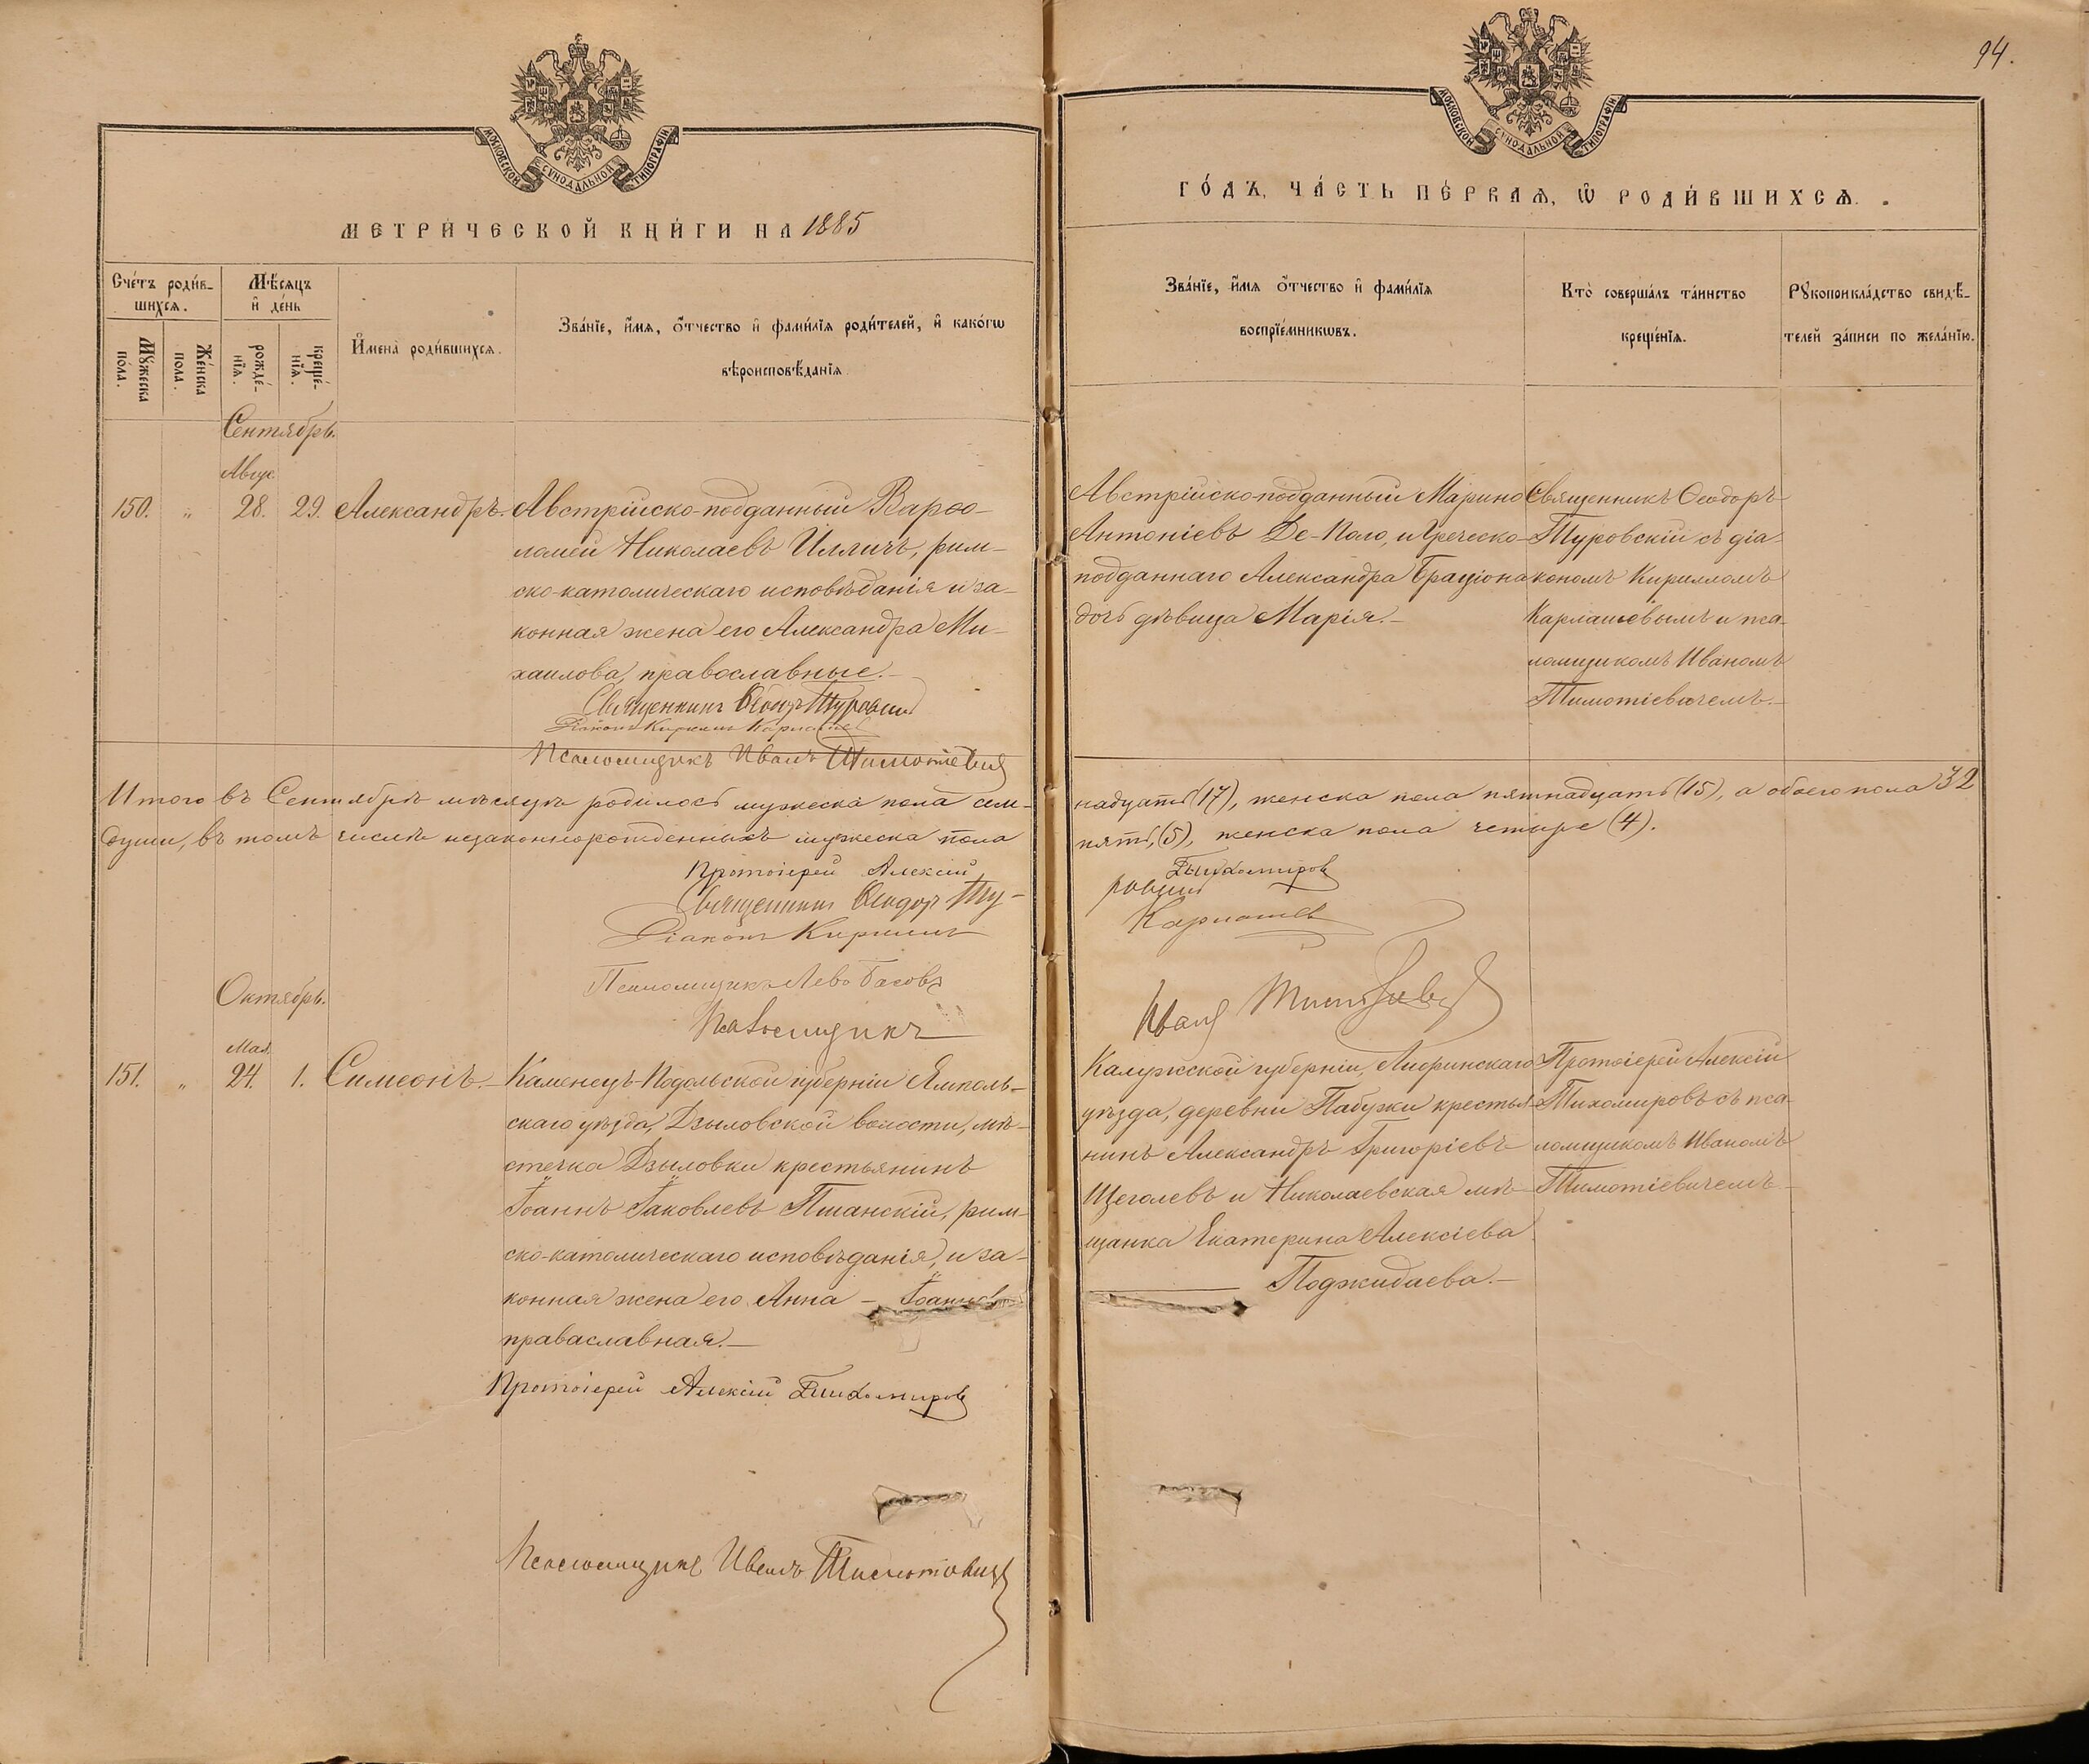 94.
МОСКОВСКОЙ СѴНОДАЛЬНОЙ ТИПОГРАФІИ
МОСКОВСКОЙ СѴНОДАЛЬНОЙ ТИПОГРАФІИ
МЕТРИ́ЧЕСКОЙ КНИ́ГИ НА 1885
ГО́ДЪ, ЧА́СТЬ ПЕ́РВАѦ, Ѽ РОДИ́ВШИХСѦ.
Сче́тъ роди́в-
шихсѧ.
Мѣ́сяцъ
и҆ де́нь
И҆мена̀ роди́вшихсѧ.
Зва́нїе, и҆́мѧ, ѻ҆́тчество и҆ фами́лїѧ роди́телей, и҆ како́гѡ
вѣроисповѣ́данїѧ
Мꙋ́жеска
по́ла.
Же́нска
пола.
рожде́-
нїѧ.
креще́-
нїѧ.
Зва́нїе, и҆́мѧ ѻ҆́тчество и҆ фами́лїѧ
воспрїе́мникѡвъ.
Кто̀ соверша́лъ та́инство
креще́нїѧ.
Рꙋкоприкла́дство свидѣ́-
телей за́писи по жела́нїю.
Сентябрь.
Авгус.
150. „ 28. 29. Александръ.
Австрійско-подданный Варѳо-
ломей Николаевъ Илличъ, рим-
ско-католическаго исповѣданія и за-
конная жена его Александра Ми-
хаилова, православные.—
Священникъ Ѳеодоръ Туровскій
Діаконъ Кириллъ Карлашев
Псаломщикъ Иванъ Тимотіевич
Австрійско-подданный Марино
Антоніевъ Де-Поло, и Греческо-
подданнаго Александра Браціона
дочь дѣвица Марія.—
Священникъ Ѳеодоръ
Туровскій съ діа-
кономъ Кирилломъ
Карлашевымъ и пса-
ломщикомъ Иваномъ
Тимотіевичемъ.—
Итого въ Сентябрѣ мѣсяцѣ родилось мужеска пола сем-
надцать (17), женска пола пятнадцать (15), а обоего пола 32
души, въ томъ числѣ незаконнорожденныхъ мужеска пола
пять, (5), женска пола четыре (4).
Протоіерей Алексій
Тихомиров
Священникъ Ѳеодоръ Ту-
ровскій
Діаконъ Кириллъ
Карлашев
Псаломщикъ Левъ Басовъ
Псаломщикъ
Иванъ Тимотіевич
Октябрь.
Мая
151. „ 24. 1. Симеонъ.—
Каменецъ-Подольской губерніи Ямполь-
скаго уѣзда, Дзыговской волости, мѣ-
стечка Дзыговки крестьянинъ
Іоаннъ Іаковлевъ Пшанскій, рим-
ско-католическаго исповѣданія, и за-
конная жена его Анна — Іоаннова
праваславная.—
Протоіерей Алексій Тихомиров
Псаломщикъ Иванъ Тимотіевич
Калужской губерніи, Лифинскаго
уѣзда, деревни Пабужи крестья-
нинъ Александръ Григоріевъ
Щеголевъ и Николаевская мѣ-
щанка Екатерина Алексіева
Поджидаева.—
Протоіерей Алексій
Тихомировъ съ пса-
ломщикомъ Иваномъ
Тимотіевичемъ.—